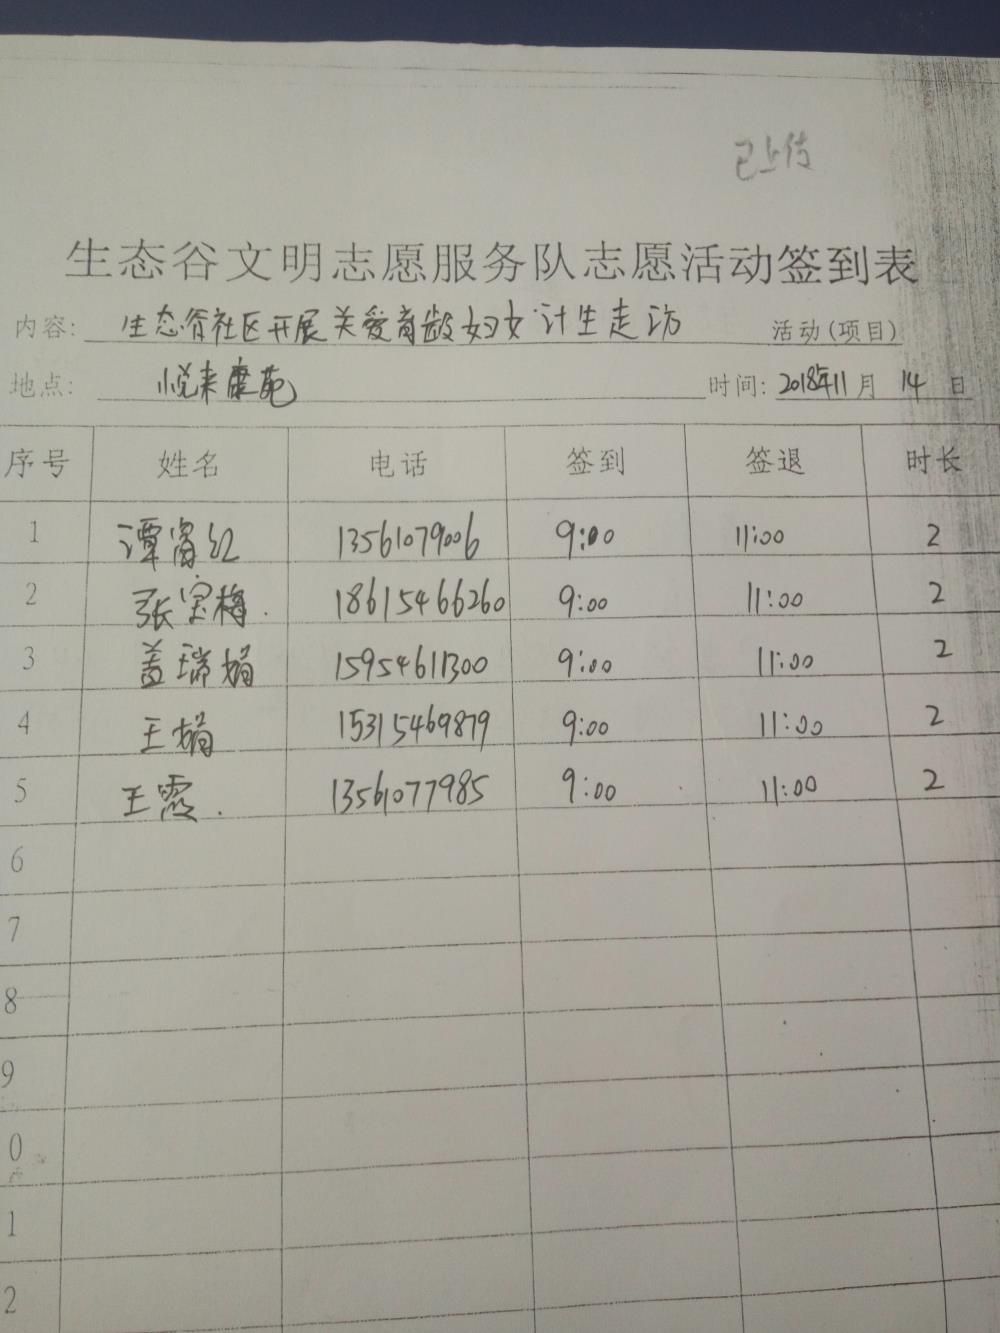 已上传
生态谷文明志愿服务队志愿活动签到表
内容: 生态谷社区开展关爱育龄妇女计生走访 活动(项目)
地点: 悦来康苑 时间: 2018年11月14日
序号 姓名 电话 签到 签退 时长
1 谭富红 13561079006 9:00 11:00 2
2 张宝梅. 18615466260 9:00 11:00 2
3 盖瑞娟 15954611300 9:00 11:00 2
4 王娟 15315469879 9:00 11:00 2
5 王霞. 13561077985 9:00 11:00 2
6
7
8
9
0
1
2